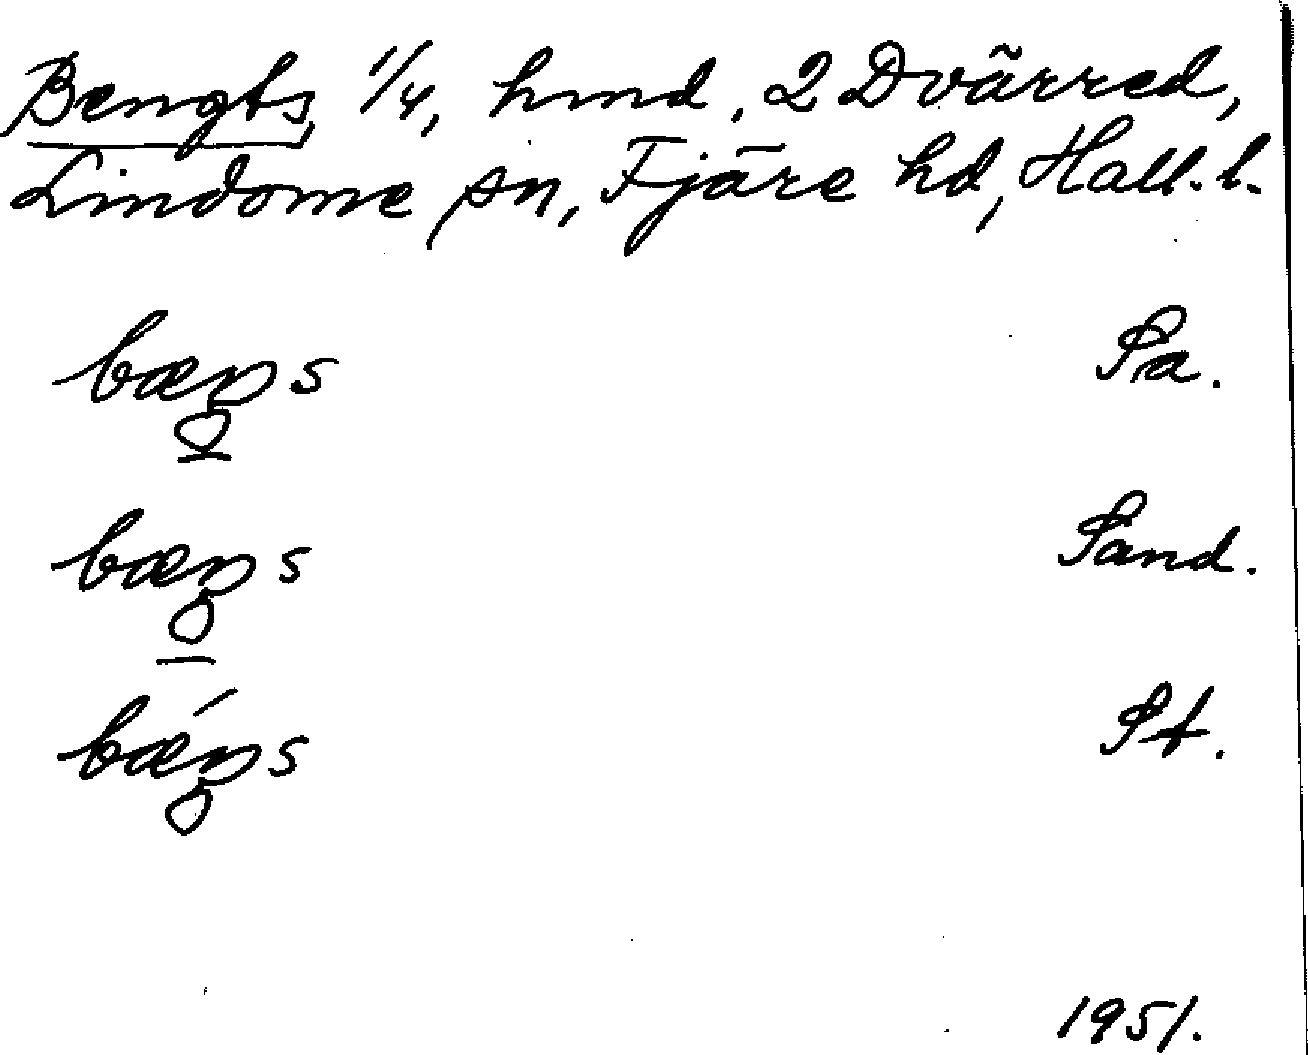 Bengts, 1/4, hmd, 2 Dvärred,
Lindome sn, Fjäre hd, Hall. l.
bæŋs Sa.
bæŋs Sand.
bǽŋs St.
1951.